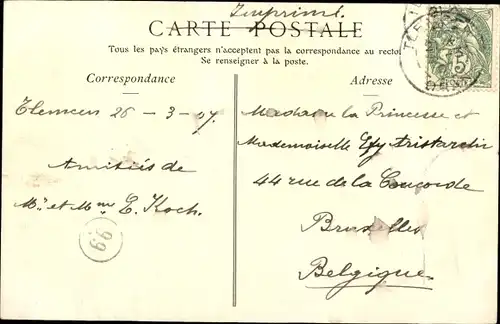 Imprimé.
CARTE POSTALE
Tous les pays étrangers n'acceptent pas la correspondance au recto
Se renseigner à la poste.
Correspondance
Adresse
Tlemcen 26 - 3 - 07.
Amitiés de
Mr et Mme E. Koch.
99
5
Madame la Princesse et
Mademoiselle Efy Aristarchi
44 rue de la Concorde
Bruxelles
Belgique